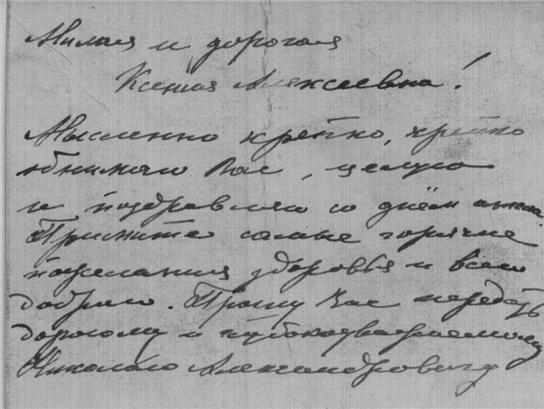 Милая и дорогая
Ксения Алексеевна!
Мысленно крепко, крепко
обнимаю Вас, целую
и поздравляю со днём ангела.
Примите самые горячие
пожелания здоровья и всего
доброго. Прошу Вас передать
дорогому и глубокоуважаемому
Николаю Александровичу